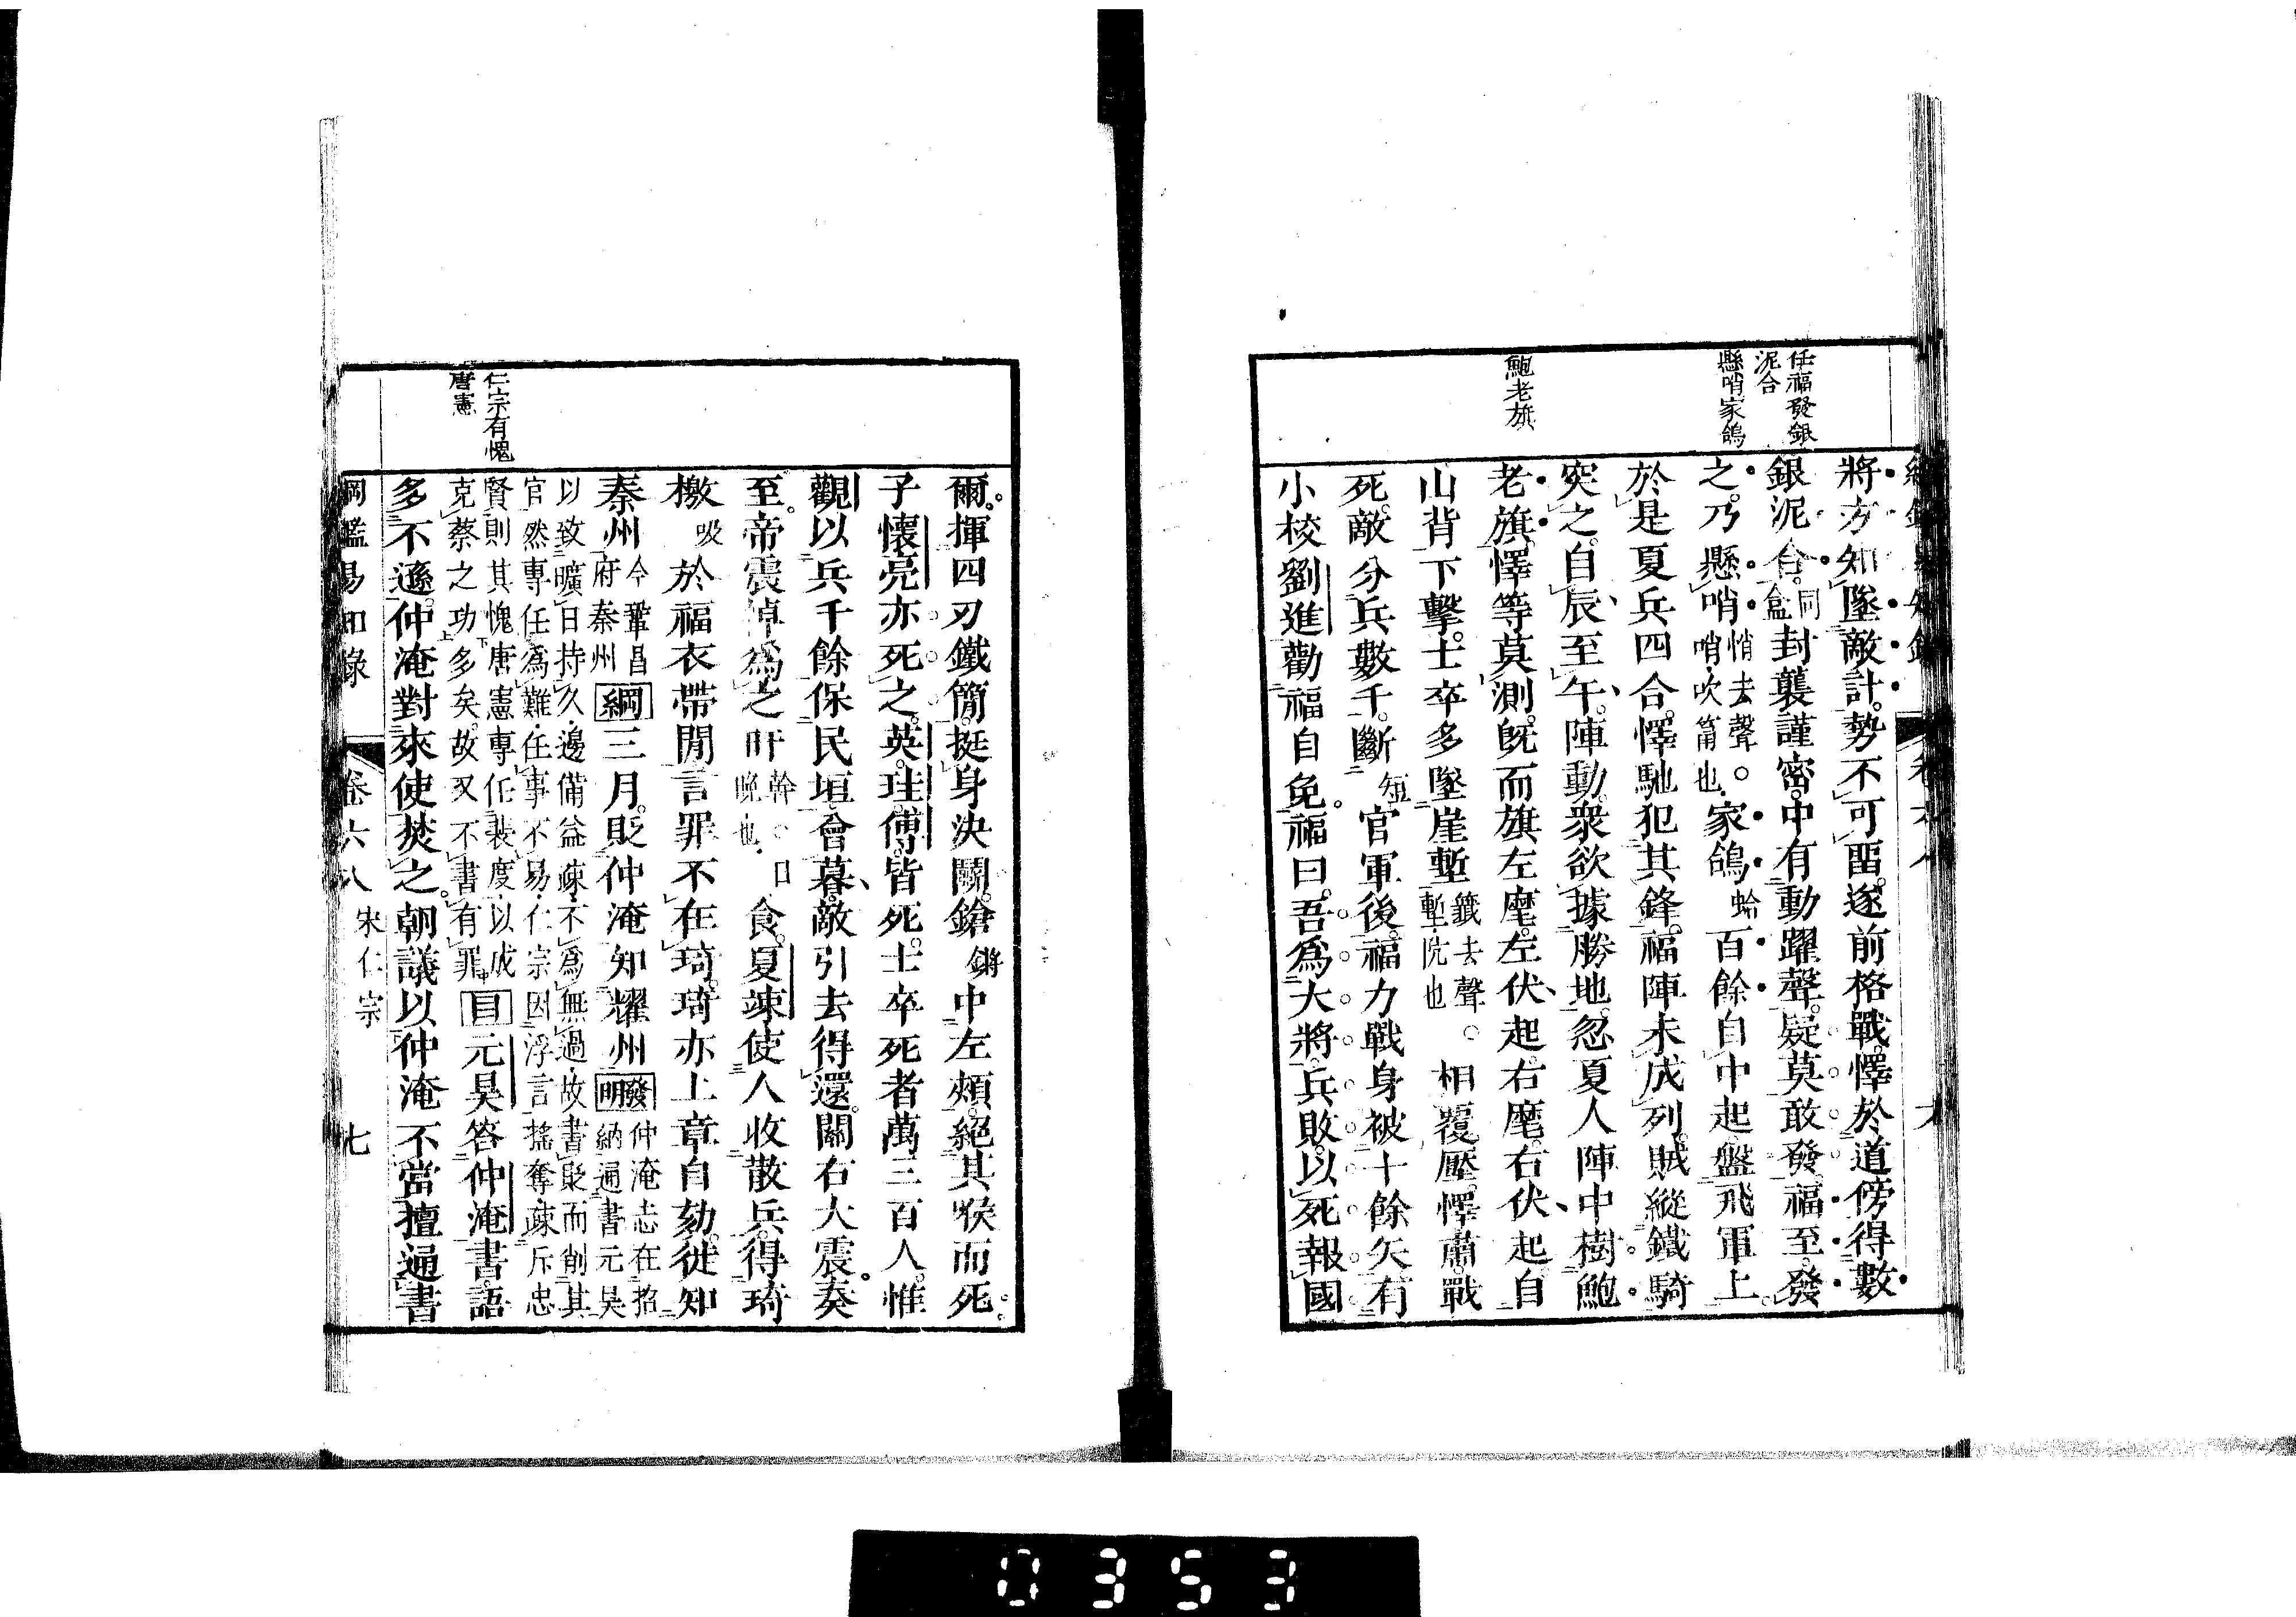 任福發銀
泥合
懸哨家鴿
鮑老旗
將方知墜敵計。勢不可留。遂前格戰。懌於道傍得數
銀泥合。同盒封襲謹密。中有動躍聲。疑莫敢發。福至。發
之。乃懸哨悄去聲。○哨吹筩也。家鴿蛤百餘自中起。盤飛軍上。
於是夏兵四合。懌馳犯其鋒。福陣未成列。賊縱鐵騎
突之。自辰至午。陣動。衆欲據勝地。忽夏人陣中樹鮑
老旗。懌等莫測。旣而旗左麾。左伏起。右麾。右伏起。自
山背下擊。士卒多墜崖塹籤去聲。○塹阬也相覆壓。懌肅戰
死。敵分兵數千。斷短官軍後。福力戰身被十餘矢。有
小校劉進勸福自免。福曰。吾爲大將。兵敗。以死報國
爾。揮四刃鐵簡。挺身決鬭。鎗鏘中左頰。絕其喉而死。
子懷亮亦死之。英。珪。傅。皆死。士卒死者萬三百人。惟
觀以兵千餘保民垣。會暮。敵引去得還。關右大震。奏
至。帝震悼。爲之旰幹。○日晚也。食。夏竦使人收散兵。得琦
檄吸於福衣帶閒。言罪不在琦。琦亦上章自劾。徙知
秦州今鞏昌府秦州綱三月。貶仲淹知耀州發明仲淹志在招納通書元昊
以致曠日持久。邊備益疎。不爲無過。故書貶而削其
官。然專任爲難。任事不易。仁宗因浮言搖奪。疎斥忠
賢。則其愧唐憲專任裴度。以成
克蔡之功多矣。故又不書有罪目元昊答仲淹書。語
多不遜。仲淹對來使焚之。朝議以仲淹不當擅通書
仁宗有愧
唐憲
綱鑑易知錄 卷六八 宋仁宗 七